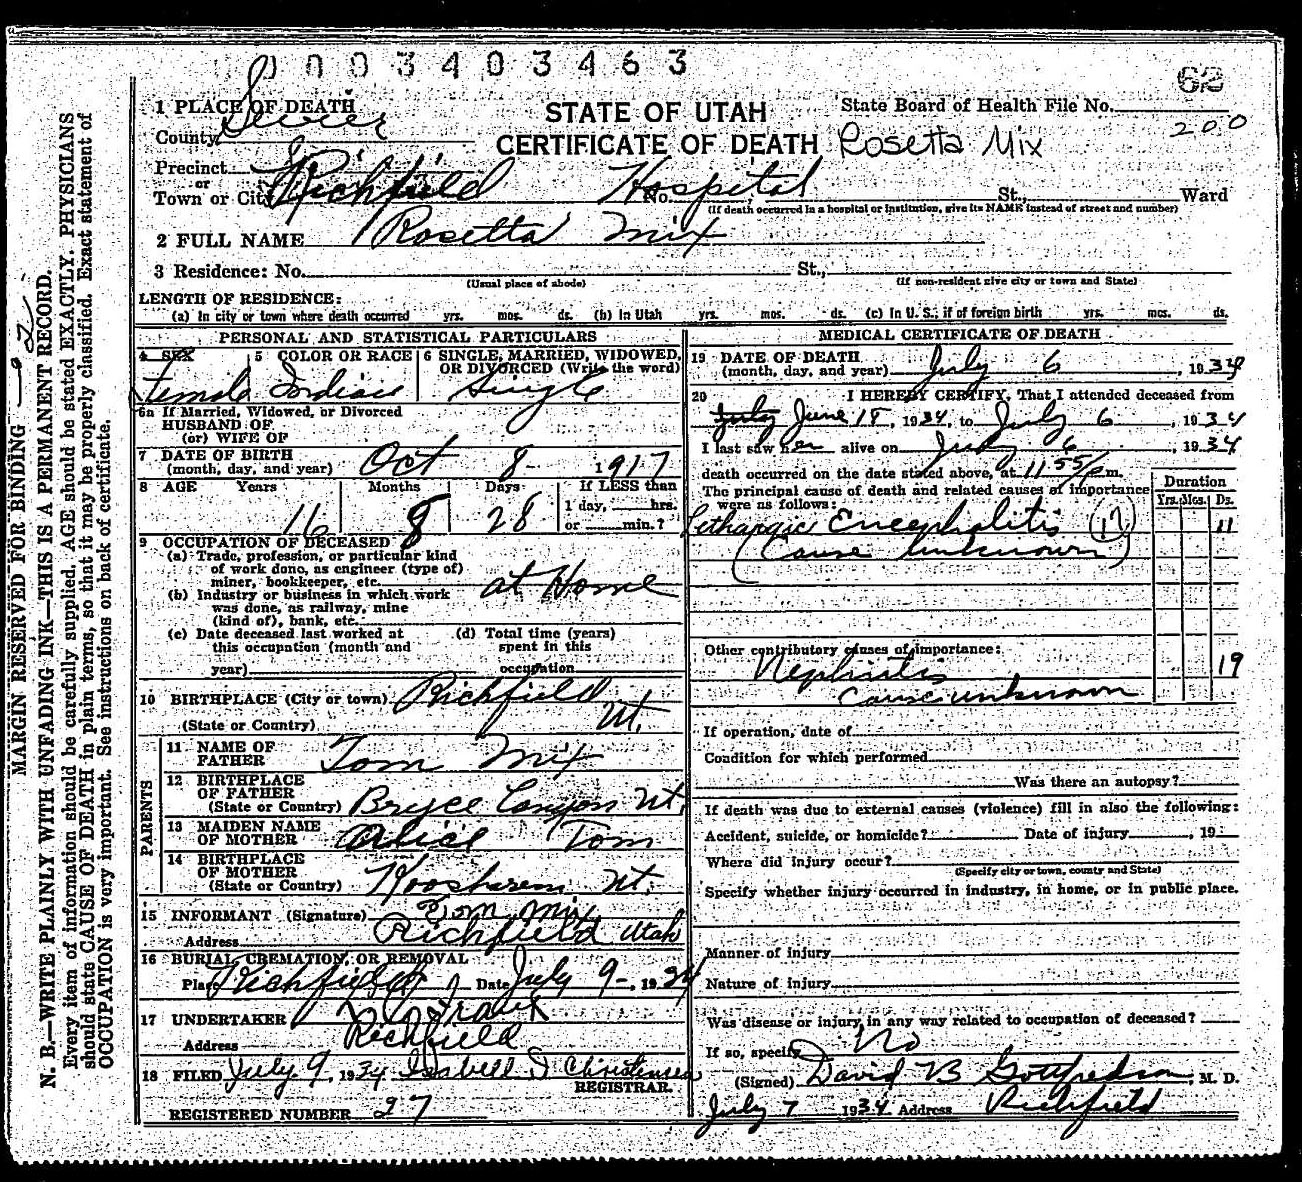 0003403463
62
1 PLACE OF DEATH
STATE OF UTAH
State Board of Health File No.
200
County Sevier
CERTIFICATE OF DEATH Rosetta Mix
Precinct
or
Town or City Richfield No. Hospital St., Ward
(If death occurred in a hospital or institution, give its NAME instead of street and number)
2 FULL NAME Rosetta Mix
3 Residence: No. St.,
(Usual place of abode) (If non-resident give city or town and State)
LENGTH OF RESIDENCE:
(a) In city or town where death occurred yrs. mos. ds. (b) In Utah yrs. mos. ds. (c) In U. S., if of foreign birth yrs. mos. ds.
PERSONAL AND STATISTICAL PARTICULARS
4 SEX 5 COLOR OR RACE 6 SINGLE, MARRIED, WIDOWED, OR DIVORCED (Write the word)
Female Indian Single
6a If Married, Widowed, or Divorced
HUSBAND OF
(or) WIFE OF
7 DATE OF BIRTH
(month, day, and year) Oct 8- 1917
8 AGE Years Months Days If LESS than
1 day, hrs.
16 8 28 or min.?
9 OCCUPATION OF DECEASED
(a) Trade, profession, or particular kind
of work done, as engineer (type of)
miner, bookkeeper, etc. at Home
(b) Industry or business in which work
was done, as railway, mine
(kind of), bank, etc.
(c) Date deceased last worked at (d) Total time (years)
this occupation (month and spent in this
year) occupation
10 BIRTHPLACE (City or town) Richfield
(State or Country) Ut.
PARENTS
11 NAME OF
FATHER Tom Mix
12 BIRTHPLACE
OF FATHER
(State or Country) Bryce Canyon Ut.
13 MAIDEN NAME
OF MOTHER Alice Tom
14 BIRTHPLACE
OF MOTHER
(State or Country) Koosharem Ut.
15 INFORMANT (Signature) Tom Mix
Address Richfield Utah
16 BURIAL, CREMATION, OR REMOVAL
Place Richfield Date July 9-, 1934
17 UNDERTAKER
Address Richfield
18 FILED July 9, 1934 Christensen
REGISTRAR.
REGISTERED NUMBER 27
MEDICAL CERTIFICATE OF DEATH
19 DATE OF DEATH
(month, day, and year) July 6, 1934
20 I HEREBY CERTIFY, That I attended deceased from
July June 18, 1934, to July 6, 1934
I last saw her alive on July 6, 1934
death occurred on the date stated above, at 11 55/p m.
The principal cause of death and related causes of importance
were as follows:
Duration
Yrs. Mos. Ds.
Lethargic Encephalitis (17) 11
(Cause unknown)
Other contributory causes of importance:
Nephritis 19
Cause unknown
If operation, date of
Condition for which performed
Was there an autopsy?
If death was due to external causes (violence) fill in also the following:
Accident, suicide, or homicide? Date of injury, 19
Where did injury occur?
(Specify city or town, county and State)
Specify whether injury occurred in industry, in home, or in public place.
Manner of injury
Nature of injury
Was disease or injury in any way related to occupation of deceased?
If so, specify No
(Signed) David B Gottfredson, M. D.
July 7 1934 Address Richfield
MARGIN RESERVED FOR BINDING
N. B.—WRITE PLAINLY WITH UNFADING INK—THIS IS A PERMANENT RECORD.
Every item of information should be carefully supplied. AGE should be stated EXACTLY. PHYSICIANS
should state CAUSE OF DEATH in plain terms, so that it may be properly classified. Exact statement of
OCCUPATION is very important. See instructions on back of certificate.